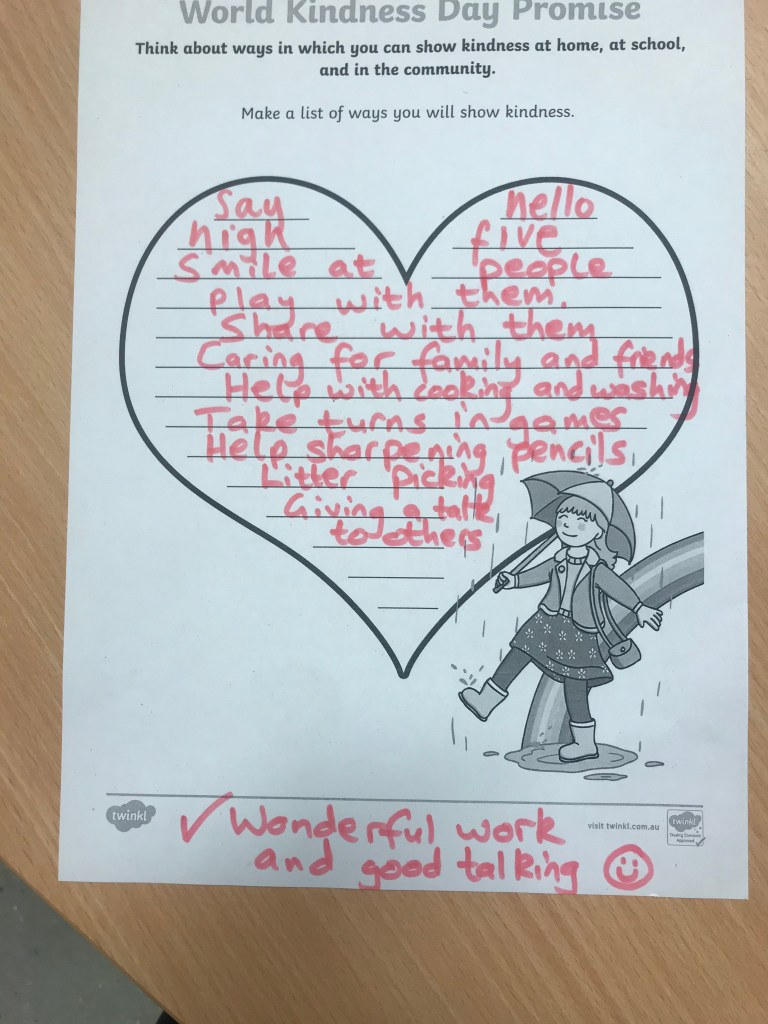 World Kindness Day Promise
Think about ways in which you can show kindness at home, at school,
and in the community.
Make a list of ways you will show kindness.
Say hello
high five
Smile at people
play with them.
Share with them
Caring for family and friends
Help with cooking and washing
Take turns in games
Help sharpening pencils
Litter picking
Giving a talk
to others
twinkl
✓ Wonderful work
and good talking
visit twinkl.com.au
twinkl
Quality Standard
Approved